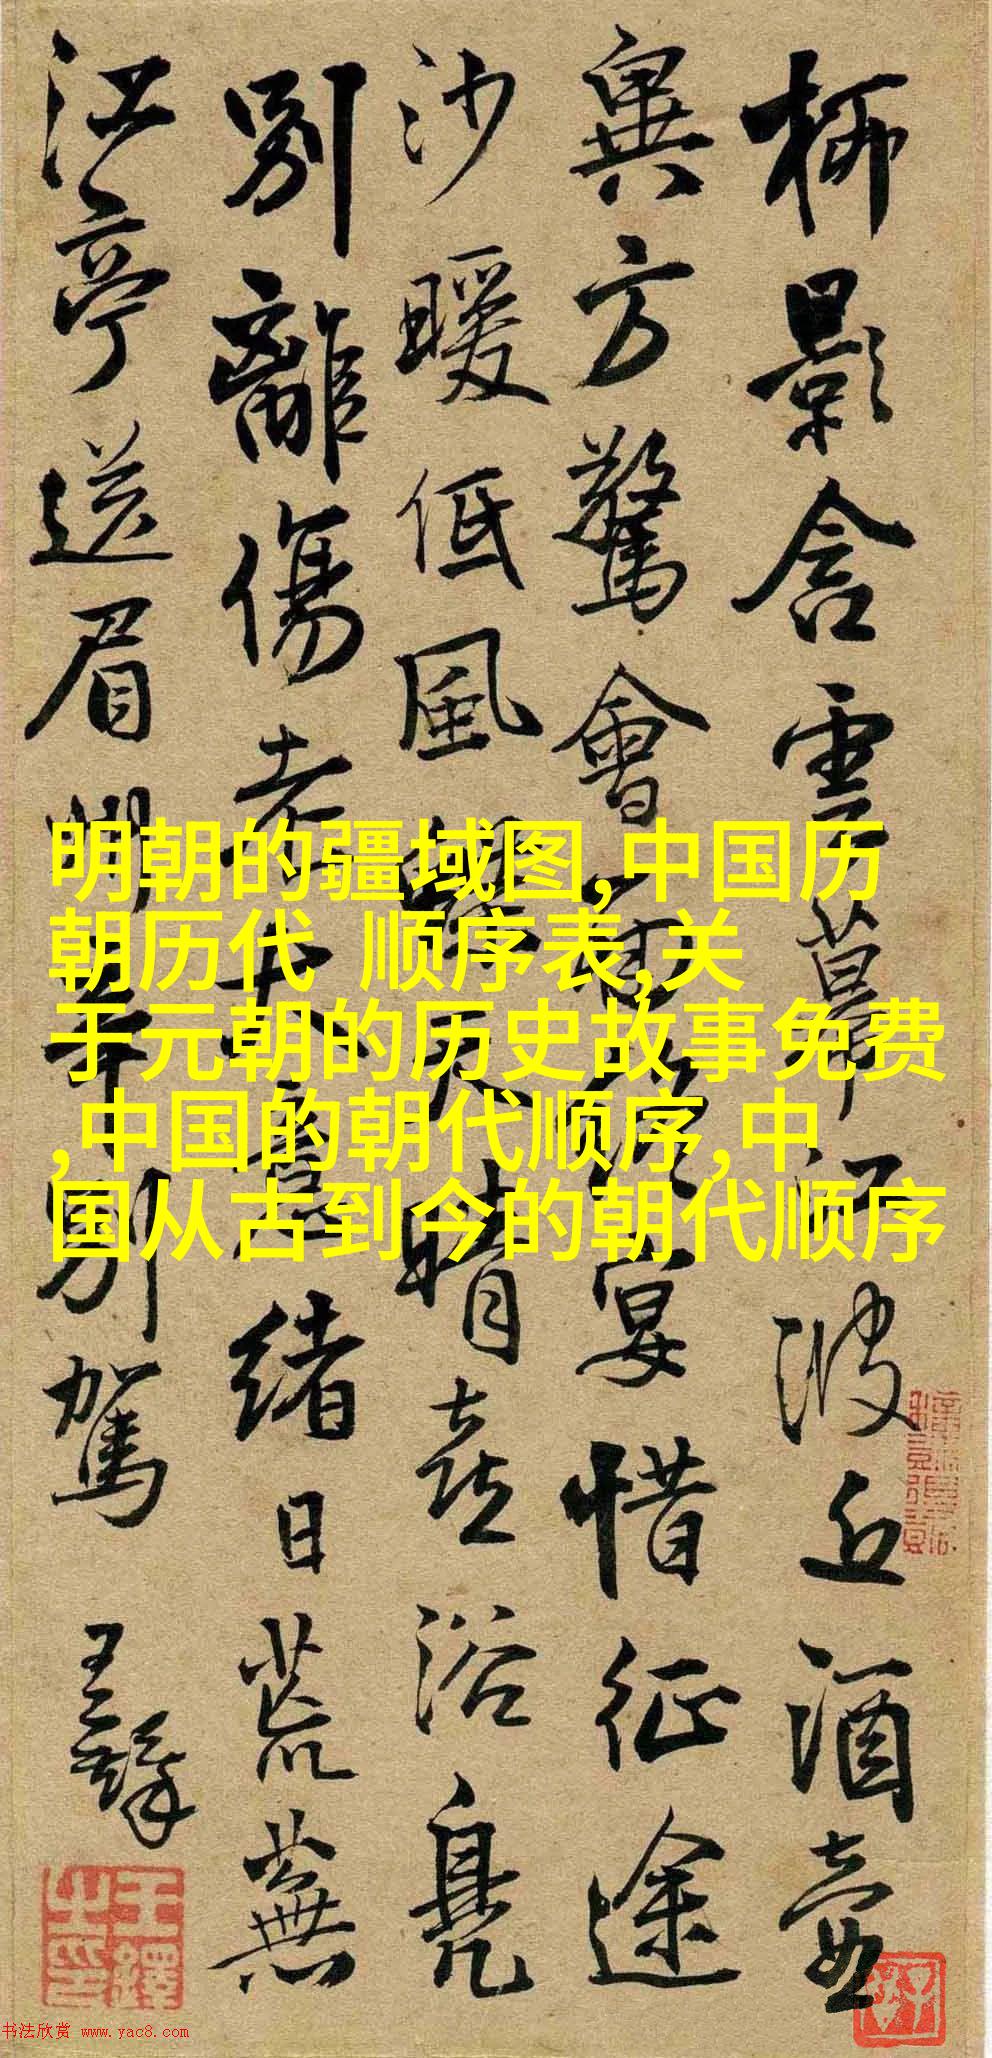 柳影含雲幕江波近酒壺
異方驚會面終宴惜征途
沙暖低風蝶天晴喜浴鳧
別離傷老大意緒日荒蕪
江亭送眉州辛別駕 王鐸
王鐸之印
明朝的疆域图,中国历
朝历代 顺序表,关
于元朝的历史故事免费
,中国的朝代顺序,中
国从古到今的朝代顺序
书法欣赏 www.yac8.com